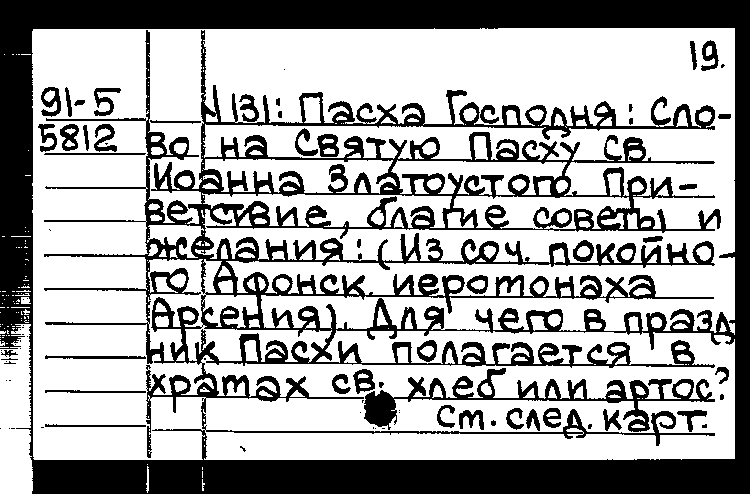 19.
91-5 №131: Пасха Господня: Сло-
5812 во на Святую Пасху св.
Иоанна Златоустого. При-
ветствие, благие советы и
желания: (Из соч. покойно-
го Афонск. иеротонаха
Арсения). Для чего в празд-
ник Пасхи полагается в
хратах св. хлеб или артос?
См. след. карт.